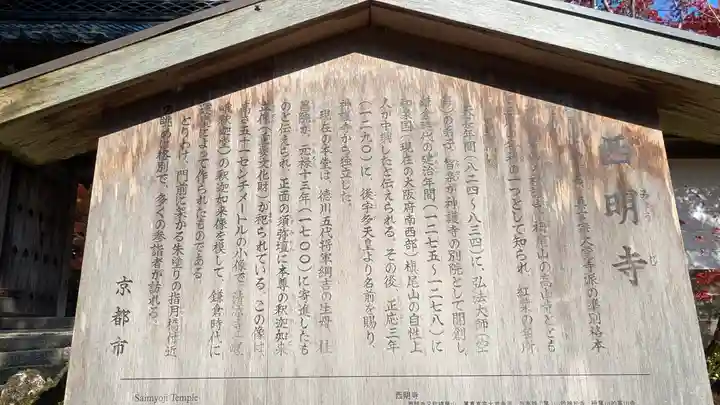 西明寺
みょうじ
大覚寺派の準別格本
栂尾山の高山寺ととも
の一つとして知られ、紅葉の名所
天長年間(八二四〜八三四)に、弘法大師(空
海)の高弟 智泉が神護寺の別院として開創し、
鎌倉時代の建治年間(一二七五〜一二七八)に
和泉国(現在の大阪府南西部)槙尾山の自性上
人が中興したと伝えられる。その後、正応三年
(一二九〇)に、後宇多天皇より名前を賜り、
神護寺から独立した。
現在の本堂は、徳川五代将軍綱吉の生母 桂
昌院が、元禄十三年(一七〇〇)に寄進したも
のと伝えられ、正面の須弥壇に本尊の釈迦如来
立像(重要文化財)が祀られている。この像は、
高さ五十一センチメートルの小像で、清凉寺(嵯
峨釈迦堂)の釈迦如来像を模して、鎌倉時代に
運慶によって作られたものである。
とりわけ、門前に架かる朱塗りの指月橋付近
の眺めは格別で、多くの参詣者が訪れる。
京都市
Saimyoji Temple
西明寺